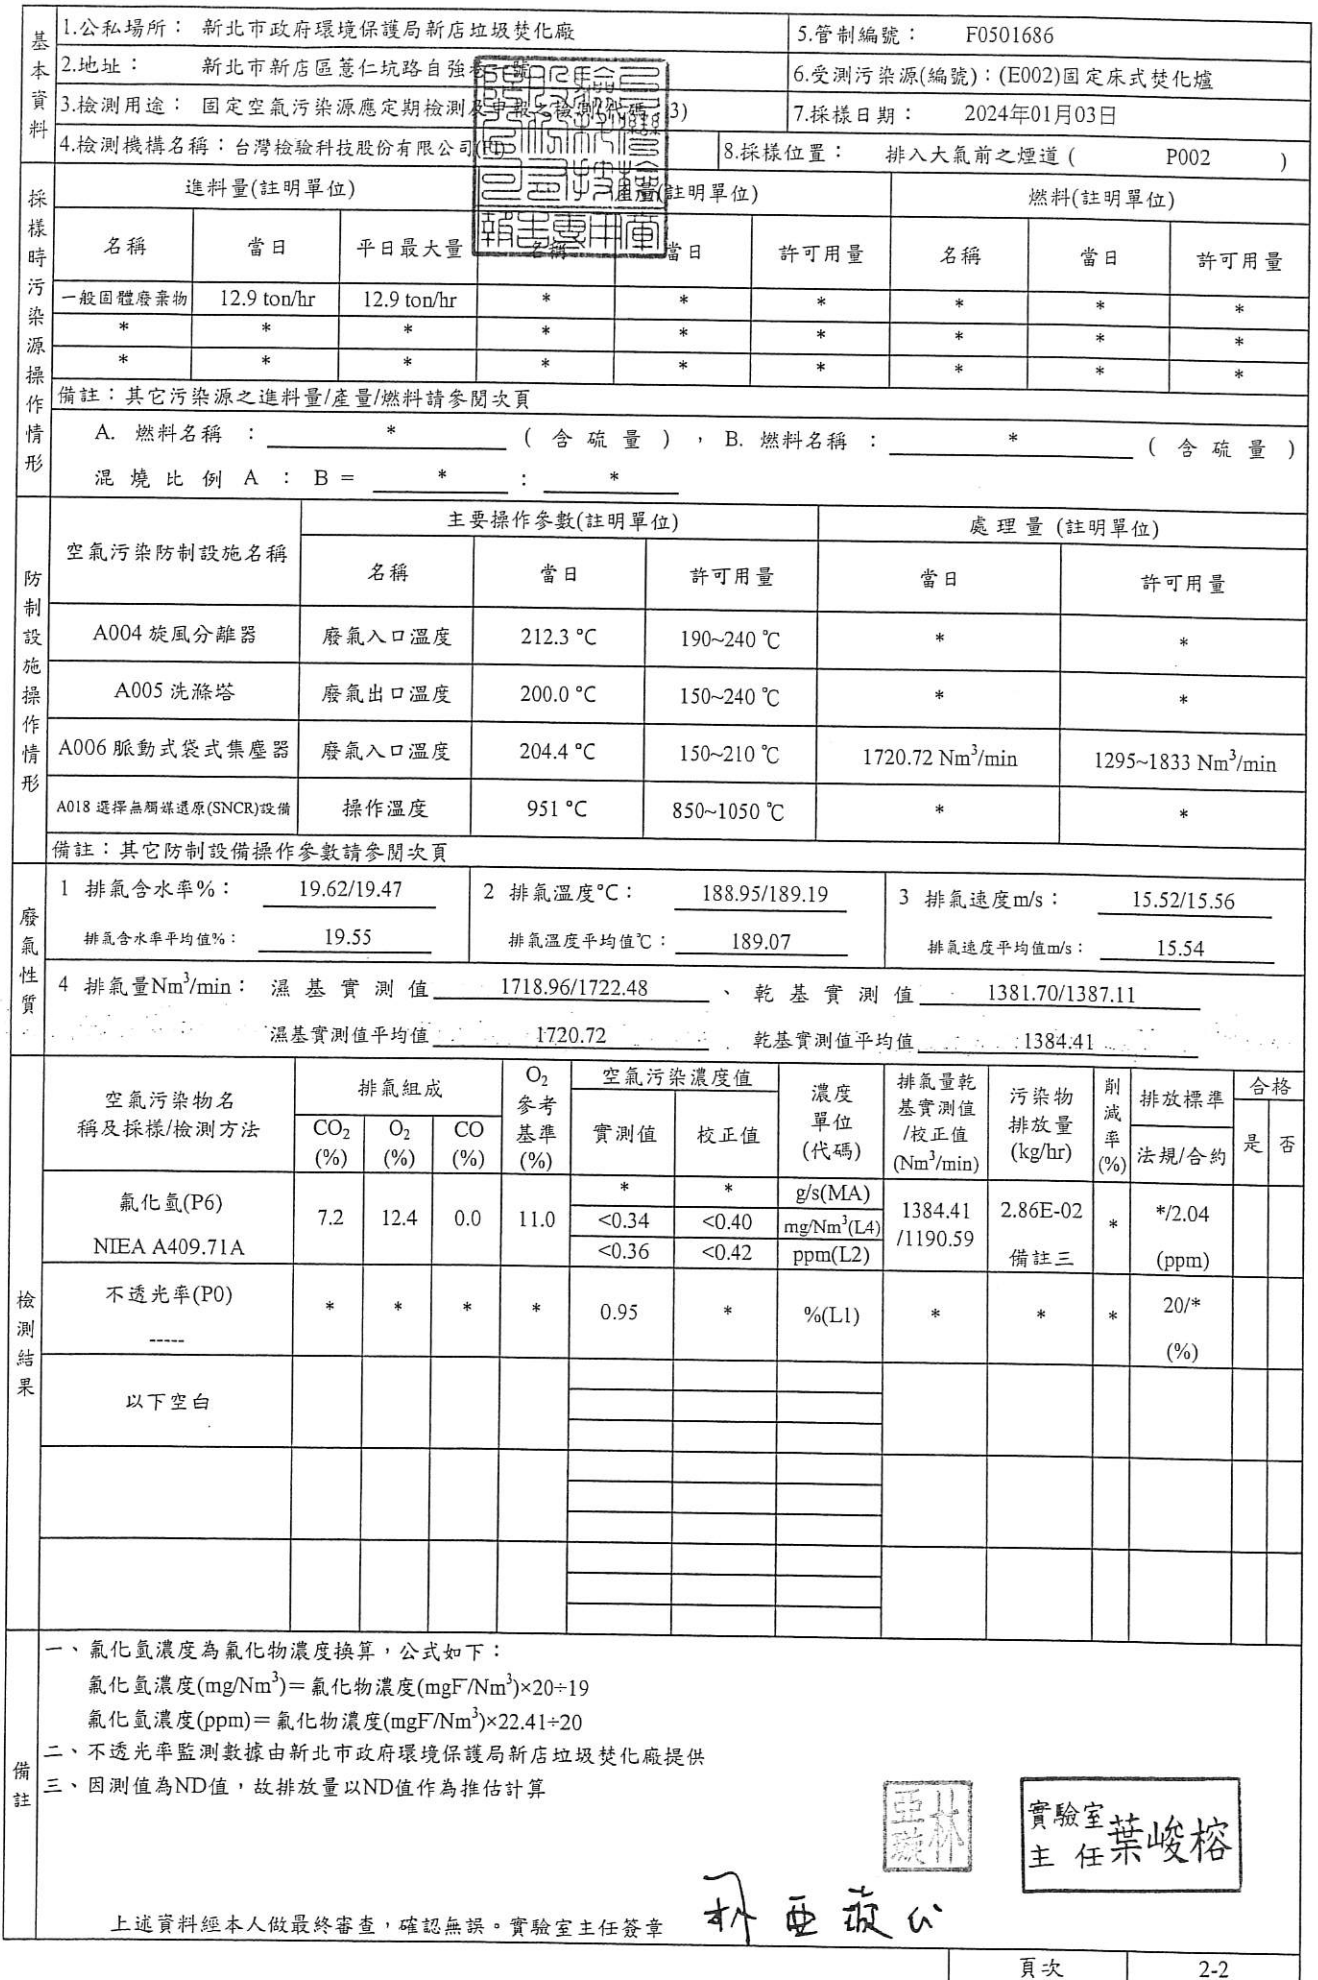 基本資料
1.公私場所： 新北市政府環境保護局新店垃圾焚化廠
5.管制編號： F0501686
2.地址： 新北市新店區薏仁坑路自強巷一號
6.受測污染源(編號)：(E002)固定床式焚化爐
3.檢測用途： 固定空氣污染源應定期檢測及申報之檢測(代碼 3)
7.採樣日期： 2024年01月03日
4.檢測機構名稱：台灣檢驗科技股份有限公司
8.採樣位置： 排入大氣前之煙道 ( P002 )
採樣時污染源操作情形
進料量(註明單位) 產量(註明單位) 燃料(註明單位)
名稱 當日 平日最大量 名稱 當日 許可用量 名稱 當日 許可用量
一般固體廢棄物 12.9 ton/hr 12.9 ton/hr * * * * * *
* * * * * * * * *
* * * * * * * * *
備註：其它污染源之進料量/產量/燃料請參閱次頁
A. 燃料名稱 ： * ( 含硫量 ) ， B. 燃料名稱 ： * ( 含硫量 )
混燒比例 A ： B = * ： *
防制設施操作情形
空氣污染防制設施名稱 主要操作參數(註明單位) 處理量 (註明單位)
名稱 當日 許可用量 當日 許可用量
A004 旋風分離器 廢氣入口溫度 212.3 ℃ 190~240 ℃ * *
A005 洗滌塔 廢氣出口溫度 200.0 ℃ 150~240 ℃ * *
A006 脈動式袋式集塵器 廢氣入口溫度 204.4 ℃ 150~210 ℃ 1720.72 Nm³/min 1295~1833 Nm³/min
A018 選擇無觸媒還原(SNCR)設備 操作溫度 951 ℃ 850~1050 ℃ * *
備註：其它防制設備操作參數請參閱次頁
廢氣性質
1 排氣含水率%： 19.62/19.47 2 排氣溫度℃： 188.95/189.19 3 排氣速度m/s： 15.52/15.56
排氣含水率平均值%： 19.55 排氣溫度平均值℃： 189.07 排氣速度平均值m/s： 15.54
4 排氣量Nm³/min： 濕基實測值 1718.96/1722.48 、乾基實測值 1381.70/1387.11
濕基實測值平均值 1720.72 乾基實測值平均值 1384.41
檢測結果
空氣污染物名稱及採樣/檢測方法 排氣組成 O₂參考基準(%) 空氣污染濃度值 濃度單位(代碼) 排氣量乾基實測值/校正值(Nm³/min) 污染物排放量(kg/hr) 削減率(%) 排放標準 合格
CO₂(%) O₂(%) CO(%) 實測值 校正值 法規/合約 是 否
氟化氫(P6) NIEA A409.71A 7.2 12.4 0.0 11.0 * * g/s(MA) 1384.41/1190.59 2.86E-02 備註三 * */2.04 (ppm)
<0.34 <0.40 mg/Nm³(L4)
<0.36 <0.42 ppm(L2)
不透光率(P0) ----- * * * * 0.95 * %(L1) * * * 20/* (%)
以下空白
備註
一、氟化氫濃度為氟化物濃度換算，公式如下：
氟化氫濃度(mg/Nm³)＝氟化物濃度(mgF⁻/Nm³)×20÷19
氟化氫濃度(ppm)＝氟化物濃度(mgF⁻/Nm³)×22.41÷20
二、不透光率監測數據由新北市政府環境保護局新店垃圾焚化廠提供
三、因測值為ND值，故排放量以ND值作為推估計算
實驗室主任葉峻榕
上述資料經本人做最終審查，確認無誤。實驗室主任簽章
頁次 2-2